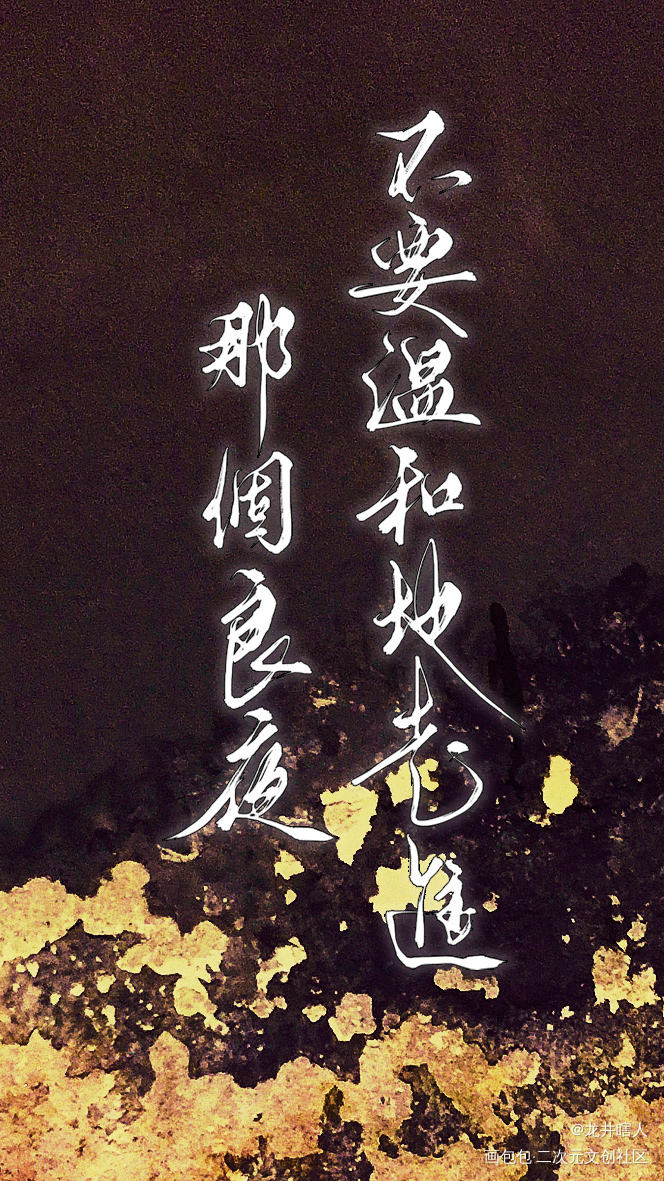 不要溫和地走進
那個良夜
@龙井瞎人
画包包·二次元文创社区